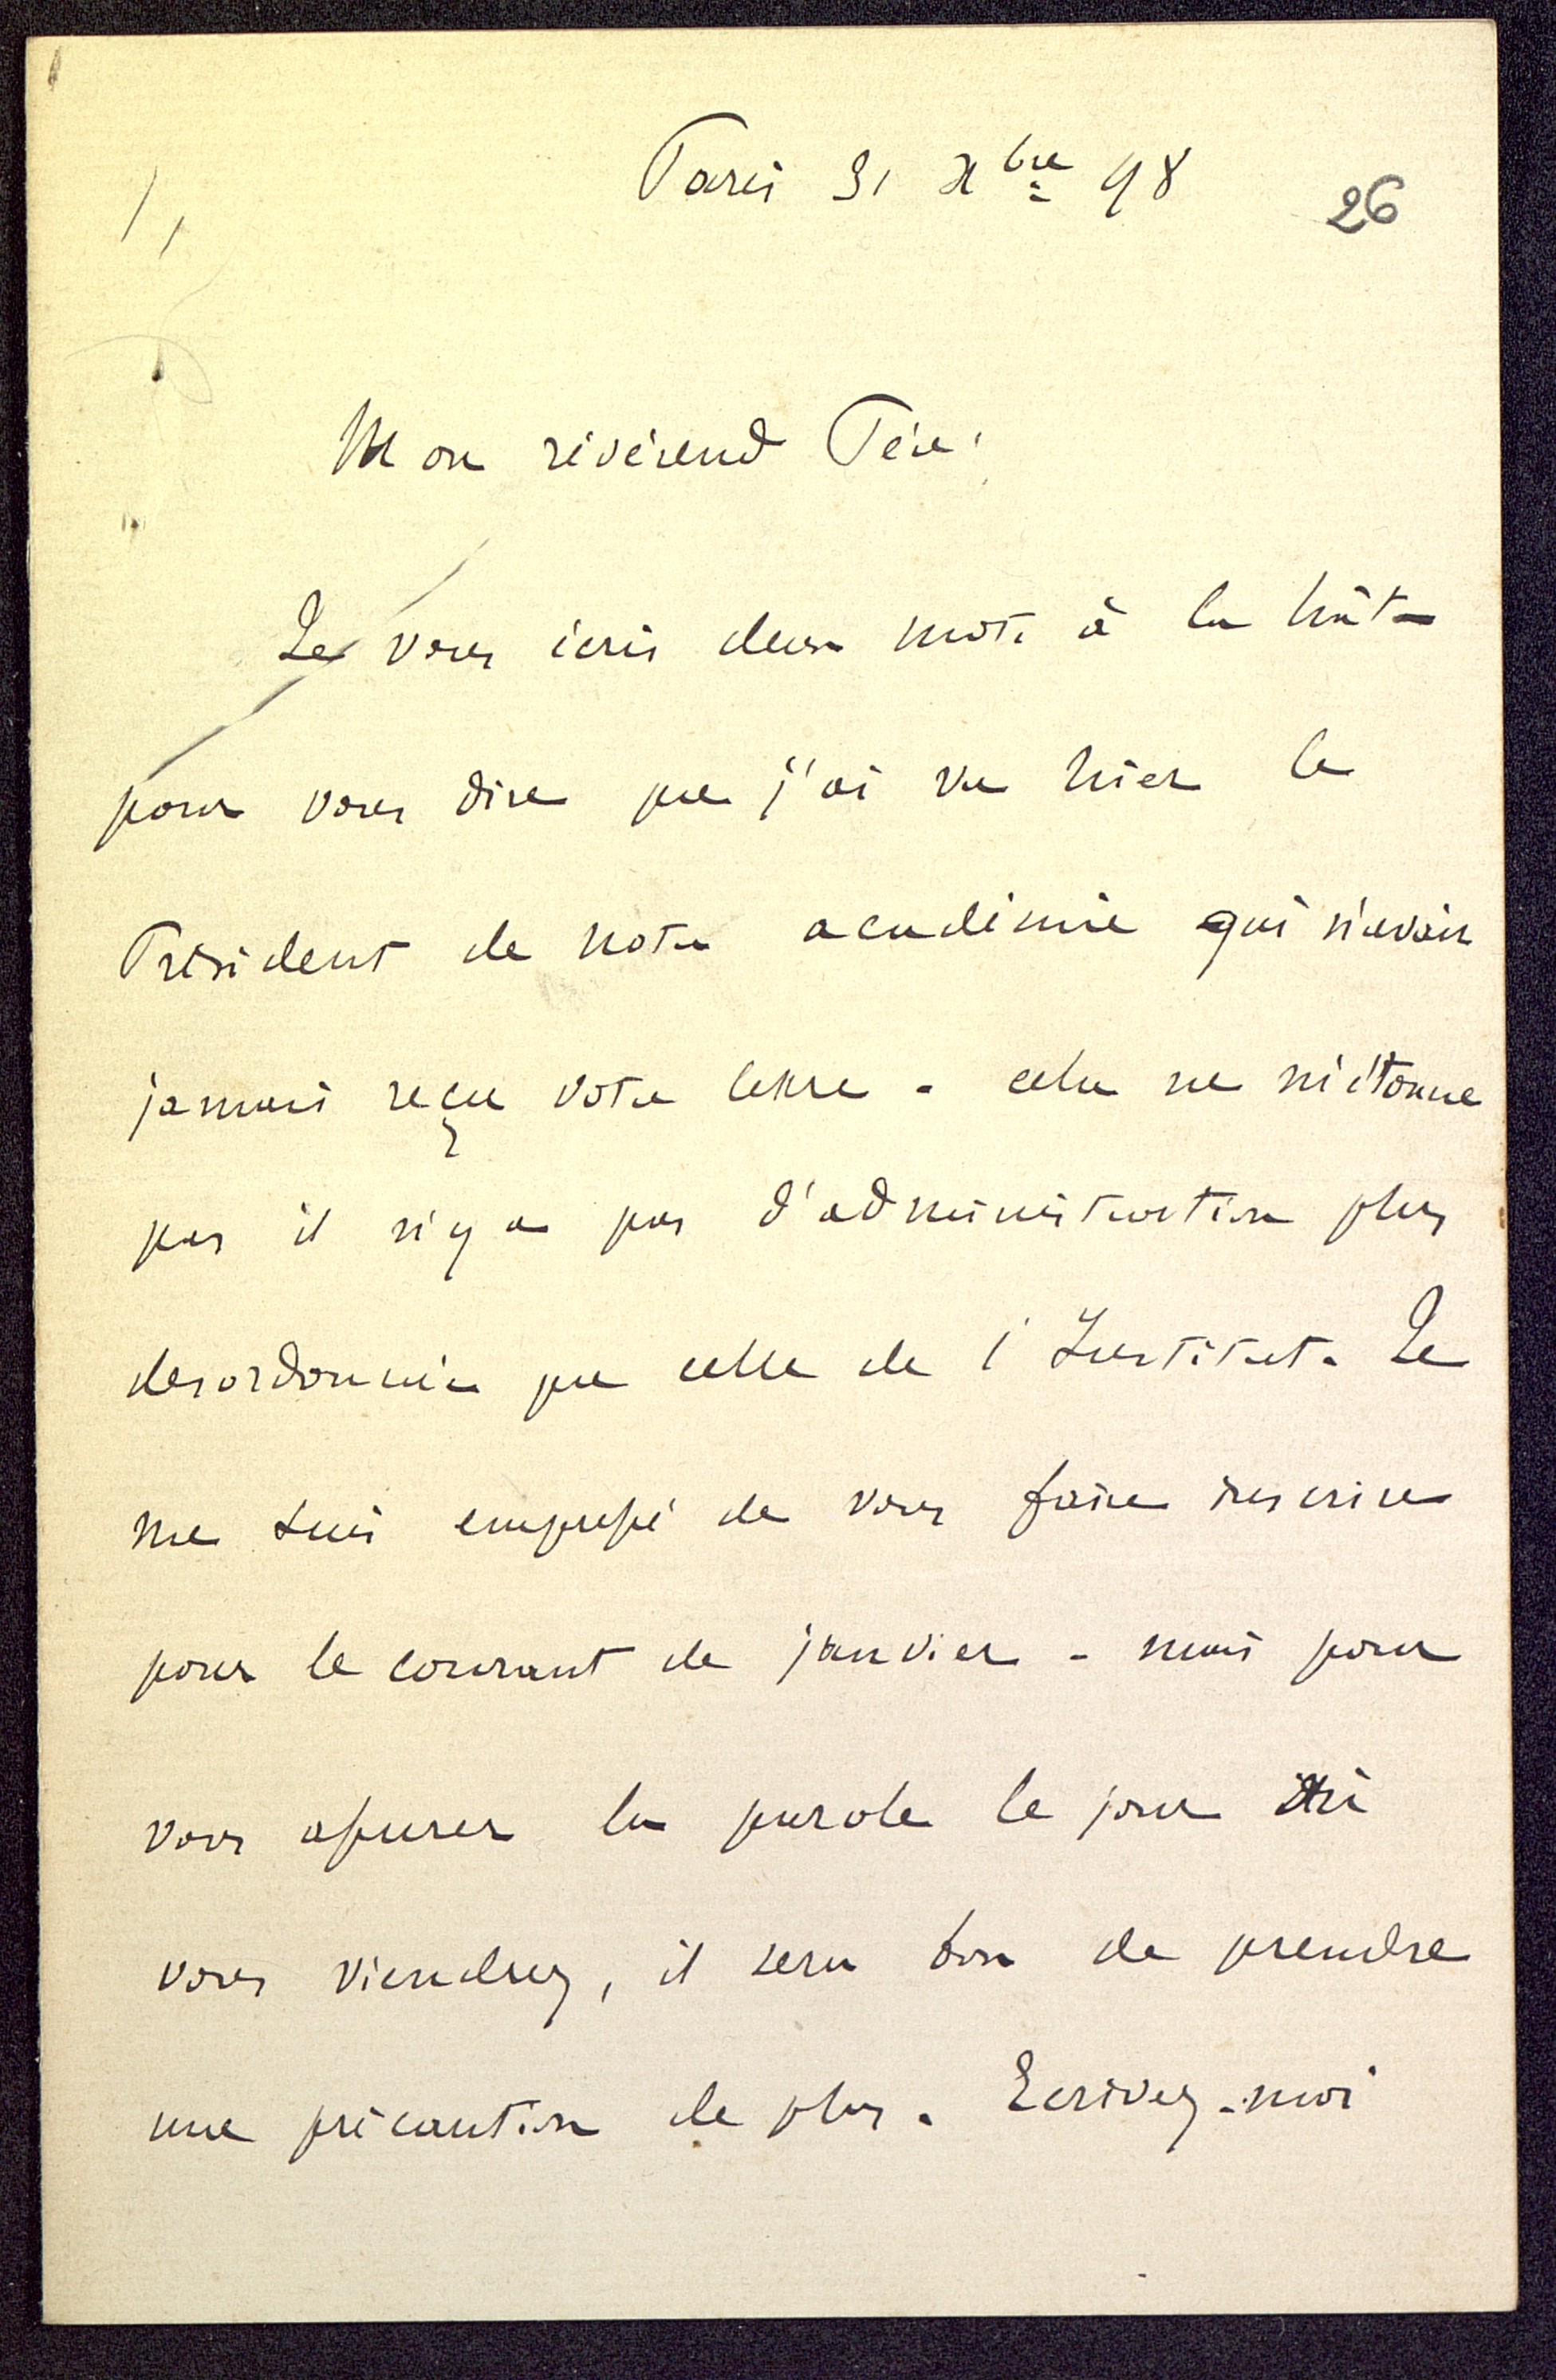 Paris 31 Xbre 98
26
Mon révérend Père,
Je vous écris deux mots à la hâte
pour vous dire que j'ai vu hier le
Président de notre académie qui n'avait
jamais reçu votre lettre - cela ne m'étonne
pas il n'y a pas d'administration plus
desordonnée que celle de l'Institut. Je
me suis empressé de vous faire inscrire
pour le courant de janvier - mais pour
vous assurer la parole le jour où
vous viendrez, il sera bon de prendre
une précaution de plus. Ecrivez-moi